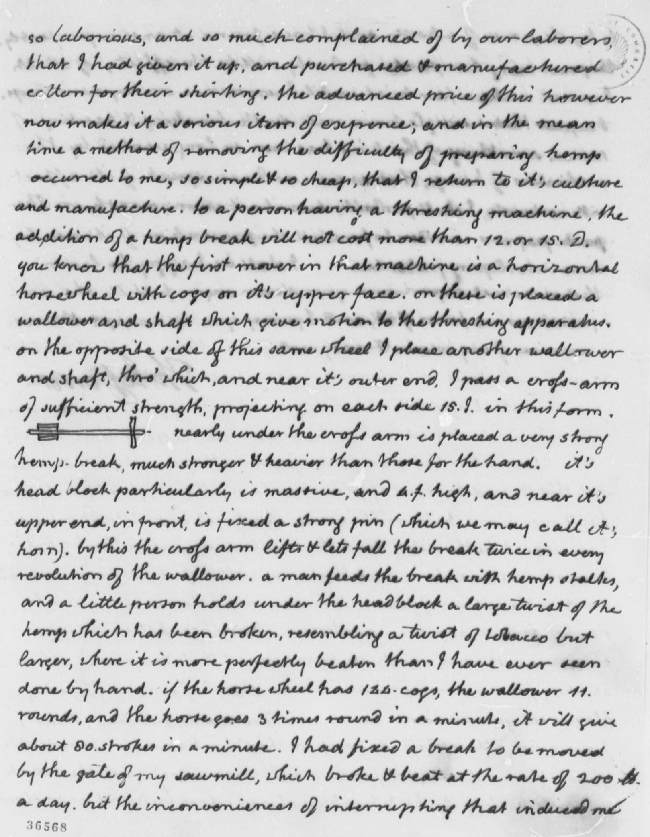 so laborious, and so much complained of by our laborers,
that I had given it up, and purchased & manufactured
cotton for their shirting. the advanced price of this however
now makes it a serious item of expence; and in the mean
time a method of removing the difficulty of preparing hemp
occurred to me, so simple & so cheap, that I return to it's culture
and manufacture. to a person having a threshing machine, the
addition of a hemp break will not cost more than 12. or 15. D.
you know that the first mover in that machine is a horizontal
horsewheel with cogs on it's upper face. on these is placed a
wallower and shaft which give motion to the threshing apparatus.
on the opposite side of this same wheel I place another wallower
and shaft, thro' which, and near it's outer end, I pass a cross-arm
of sufficient strength, projecting on each side 15. I. in this form.
nearly under the cross arm is placed a very strong
hemp-break, much stronger & heavier than those for the hand. it's
head block particularly is massive, and 4. f. high, and near it's
upper end, in front, is fixed a strong pin (which we may call it's
horn). by this the cross arm lifts & lets fall the break twice in every
revolution of the wallower. a man feeds the break with hemp stalks,
and a little person holds under the head block a large twist of the
hemp which has been broken, resembling a twist of tobacco but
larger, where it is more perfectly beaten than I have ever seen
done by hand. if the horse wheel has 144. cogs, the wallower 11.
rounds, and the horse goes 3 times round in a minute, it will give
about 80. strokes in a minute. I had fixed a break to be moved
by the gate of my sawmill, which broke & beat at the rate of 200 ℔.
a day. but the inconveniences of interrupting that induced me
36568